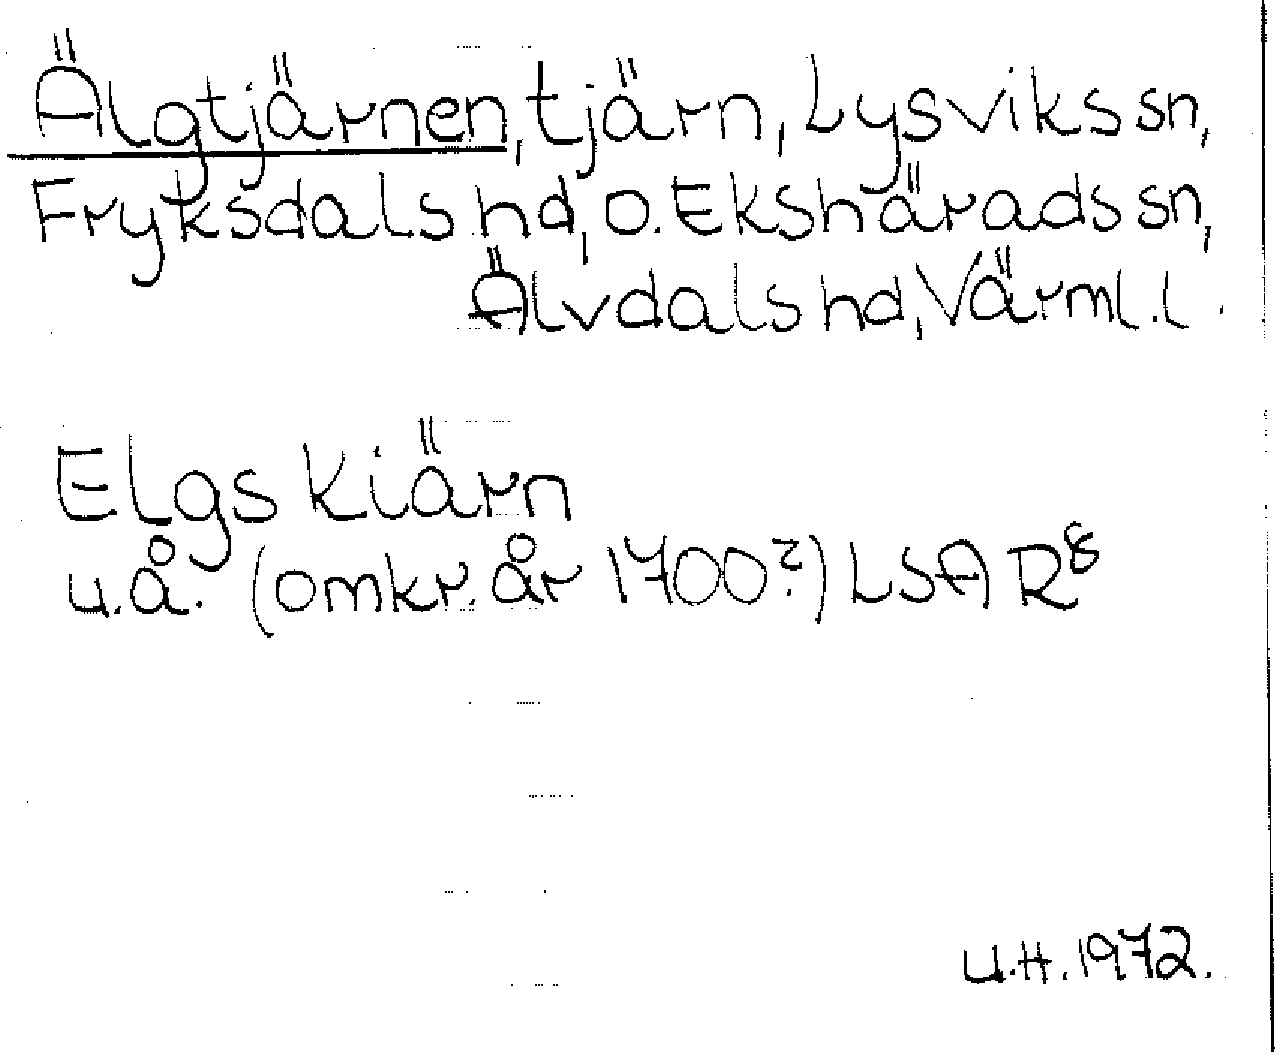 Älgtjärnen, tjärn, Lysviks sn,
Fryksdals hd, o. Ekshärads sn,
Älvdals hd, Värml. l.
Elgs Kiärn
u.å. (omkr. år 1700?) LSA R⁸
U.H. 1972.